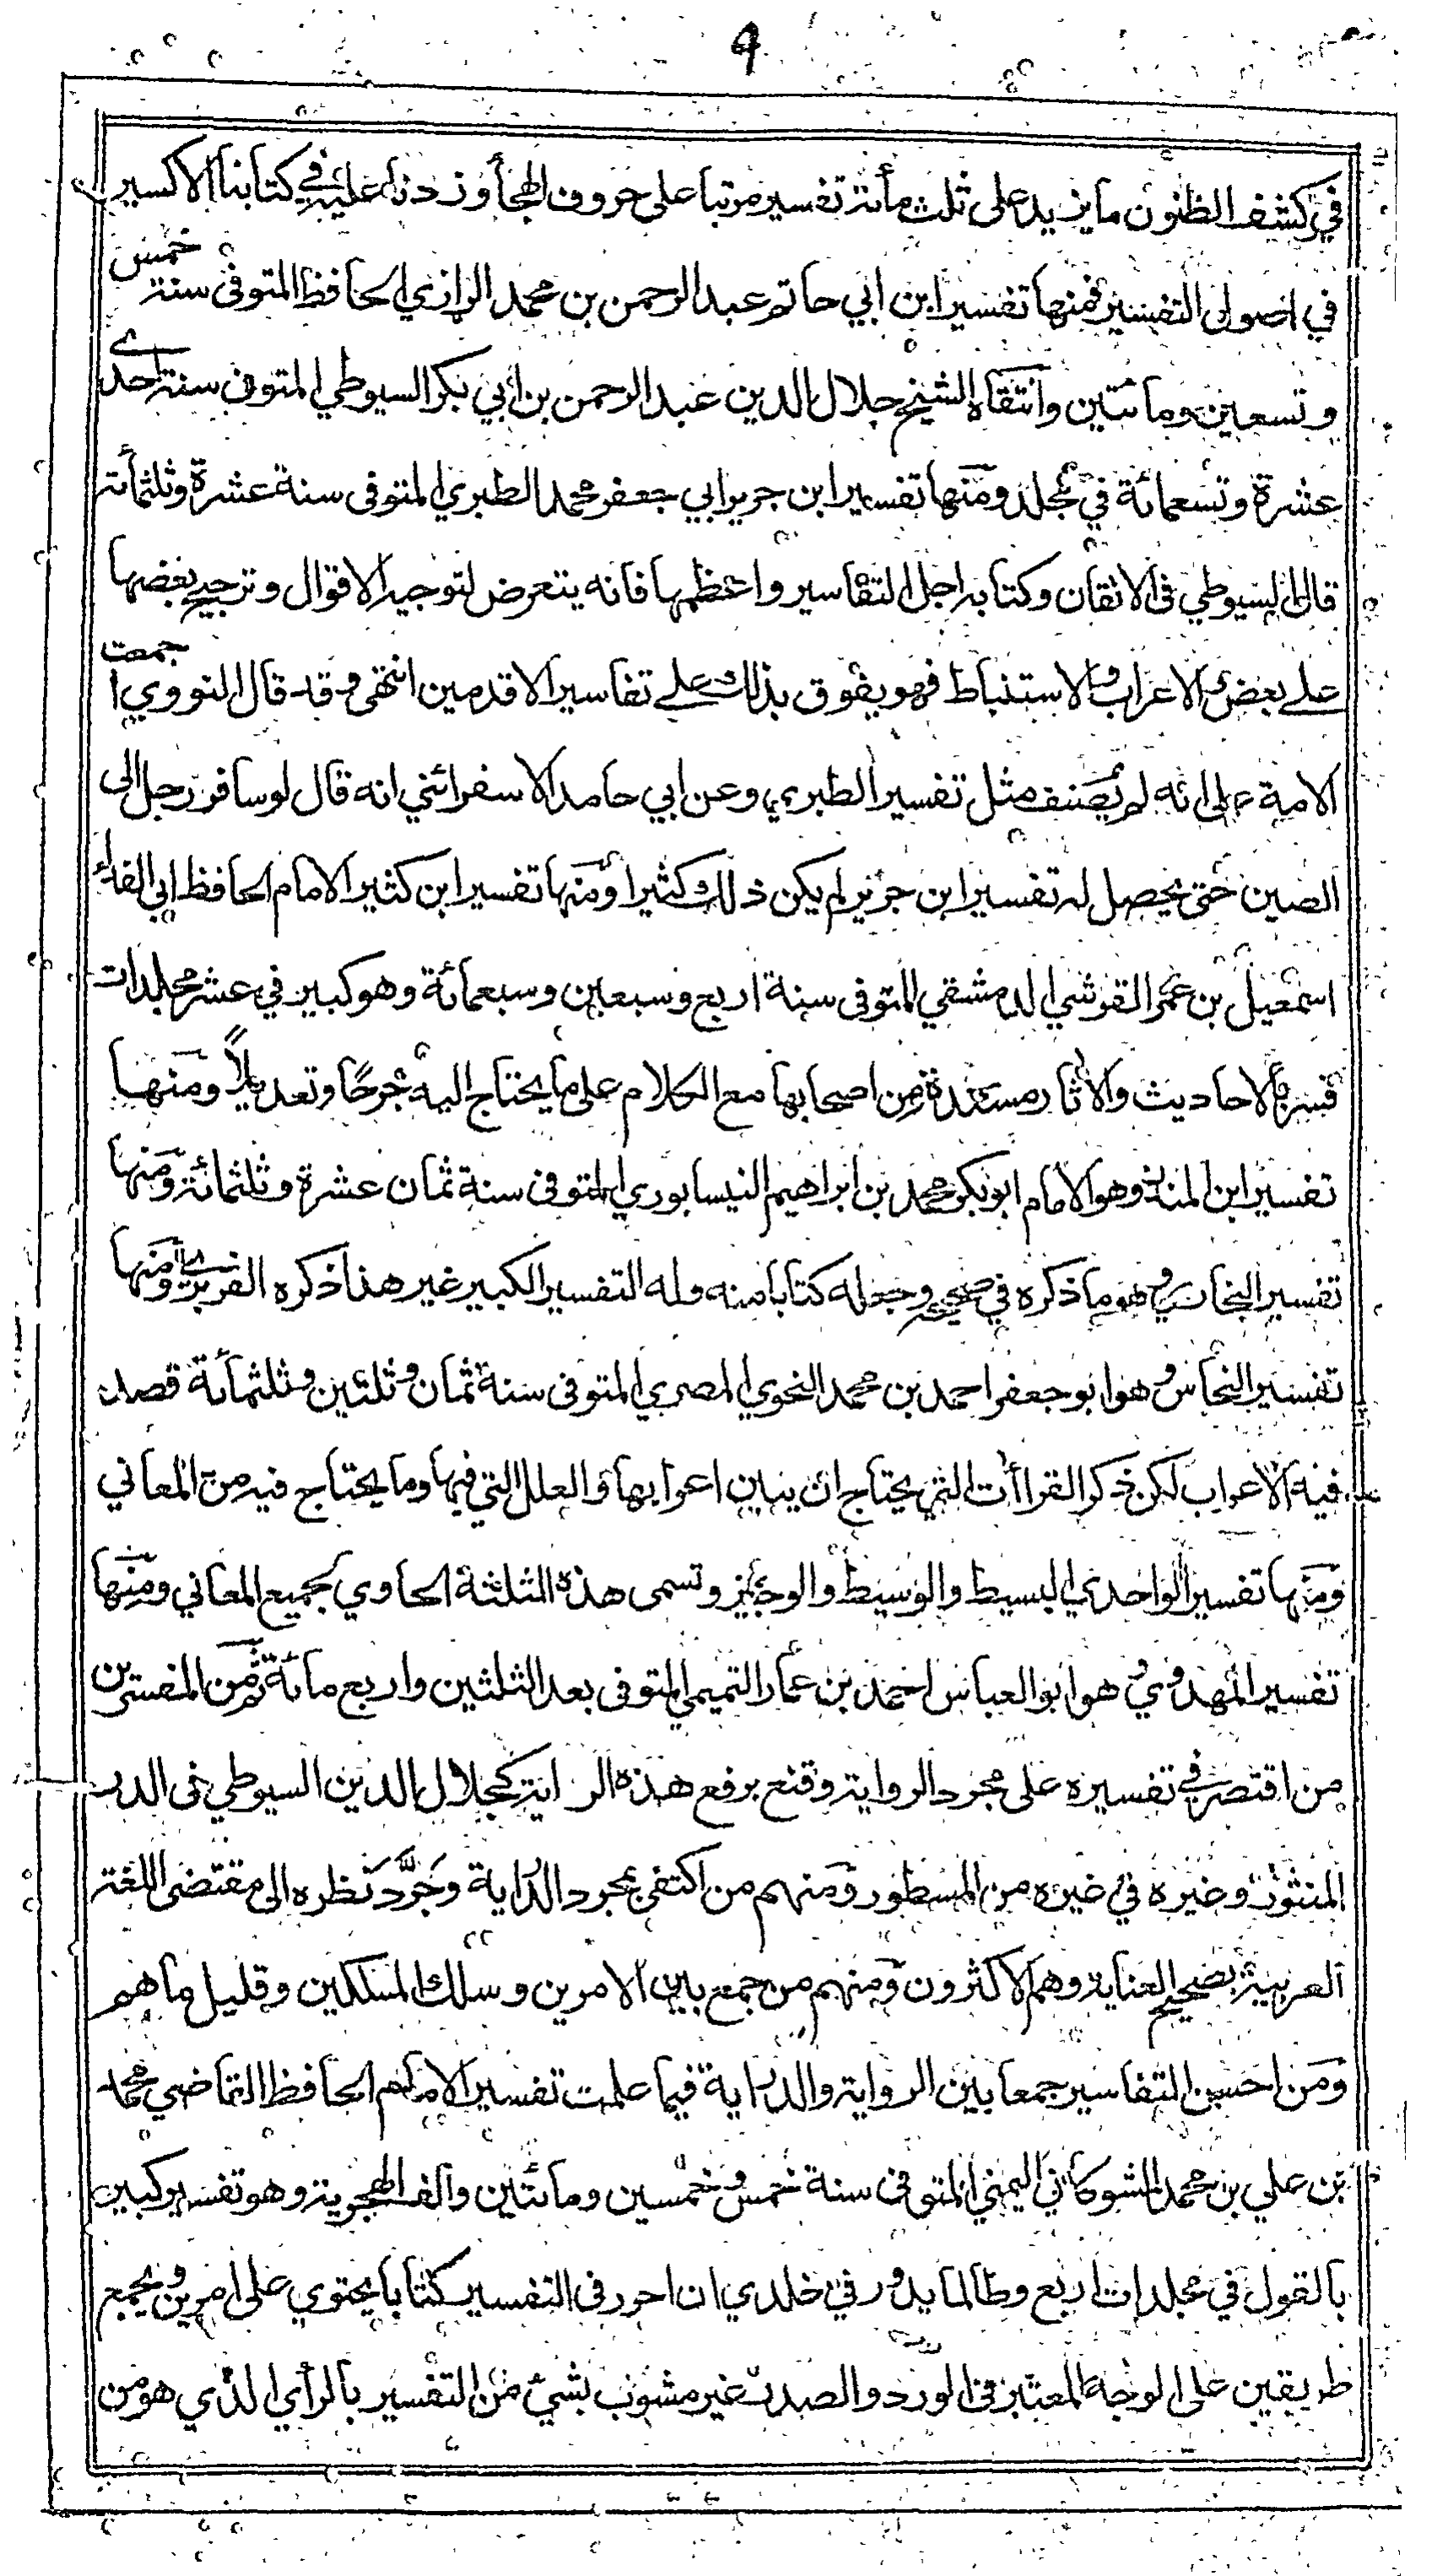 4
في كشف الظنون ما يزيد على ثلث مأئة تفسير مرتبا على حروف الهجأ وزدنا عليه في كتابنا الاكسير
في اصول التفسير فمنها تفسير ابن ابي حاتم عبد الرحمن بن محمد الرازي الحافظ المتوفى سنة خمس
وتسعين ومائتين وانتقاه الشيخ جلال الدين عبد الرحمن بن ابي بكر السيوطي المتوفى سنة احدى
عشرة وتسعمائة في مجلد ومنها تفسير ابن جرير ابي جعفر محمد الطبري المتوفى سنة عشرة وثلثمأئة
قال السيوطي فى الاتقان وكتابه اجل التفاسير واعظمها فانه يتعرض لتوجيه الاقوال وترجيح بعضها
على بعض والاعراب والاستنباط فهو يفوق بذلك على تفاسير الاقدمين انتهى وقد قال النووي اجمعت
الامة على انه لم يصنف مثل تفسير الطبري وعن ابي حامد الاسفرائني انه قال لو سافر رجل الى
الصين حتى يحصل له تفسير ابن جرير لم يكن ذلك كثيرا ومنها تفسير ابن كثير الامام الحافظ ابي الفدأ
اسمعيل بن عمر القرشي الدمشقي المتوفى سنة اربع وسبعين وسبعمائة وهو كبير في عشر مجلدات
فسر بالاحاديث والاثار مسندة من اصحابها مع الكلام على ما يحتاج اليه جرحا وتعديلاً ومنها
تفسير ابن المنذر وهو الامام ابو بكر محمد بن ابراهيم النيسابوري المتوفى سنة ثمان عشرة وثلثمائة ومنها
تفسير البخاري وهو ما ذكره في صحيحه وجعله كتابا منه وله التفسير الكبير غير هذا ذكره الفربري ومنها
تفسير النحاس وهو ابو جعفر احمد بن محمد النحوي المصري المتوفى سنة ثمان وثلثين وثلثمأئة قصد
فيه الاعراب لكن ذكر القراأت التي يحتاج ان يبين اعرابها والعلل التي فيها وما يحتاج فيه من المعاني
ومنها تفسير الواحدي البسيط والوسيط والوجيز وتسمى هذه الثلثة الحاوي لجميع المعاني ومنها
تفسير المهدوي وهو ابو العباس احمد بن عمار التميمي المتوفى بعد الثلثين واربع مائة ثم من المفسرين
من اقتصر في تفسيره على مجرد الرواية وقنع برفع هذه الراية كجلال الدين السيوطي فى الدر
المنثور وغيره في غيره من المسطور ومنهم من اكتفى بمجرد الدراية وجَرَّدَ نظره الى مقتضى اللغة
العربية بصحيح العناية وهم الاكثرون ومنهم من جمع بين الامرين وسلك المسلكين وقليل ما هم
ومن احسن التفاسير جمعا بين الرواية والدراية فيما علمت تفسير الامام الحافظ القاضي محمد
بن علي بن محمد الشوكاني اليمني المتوفى سنة خمس وخمسين ومائتين والف الهجرية وهو تفسير كبير
بالقول في مجلدات اربع وطالما يدور في خلدي ان احرر فى التفسير كتابا يحتوي على امرين ويجمع
طريقين على الوجه المعتبر فى الورد والصدر غير مشوب بشئ من التفسير بالرأي الذي هو من